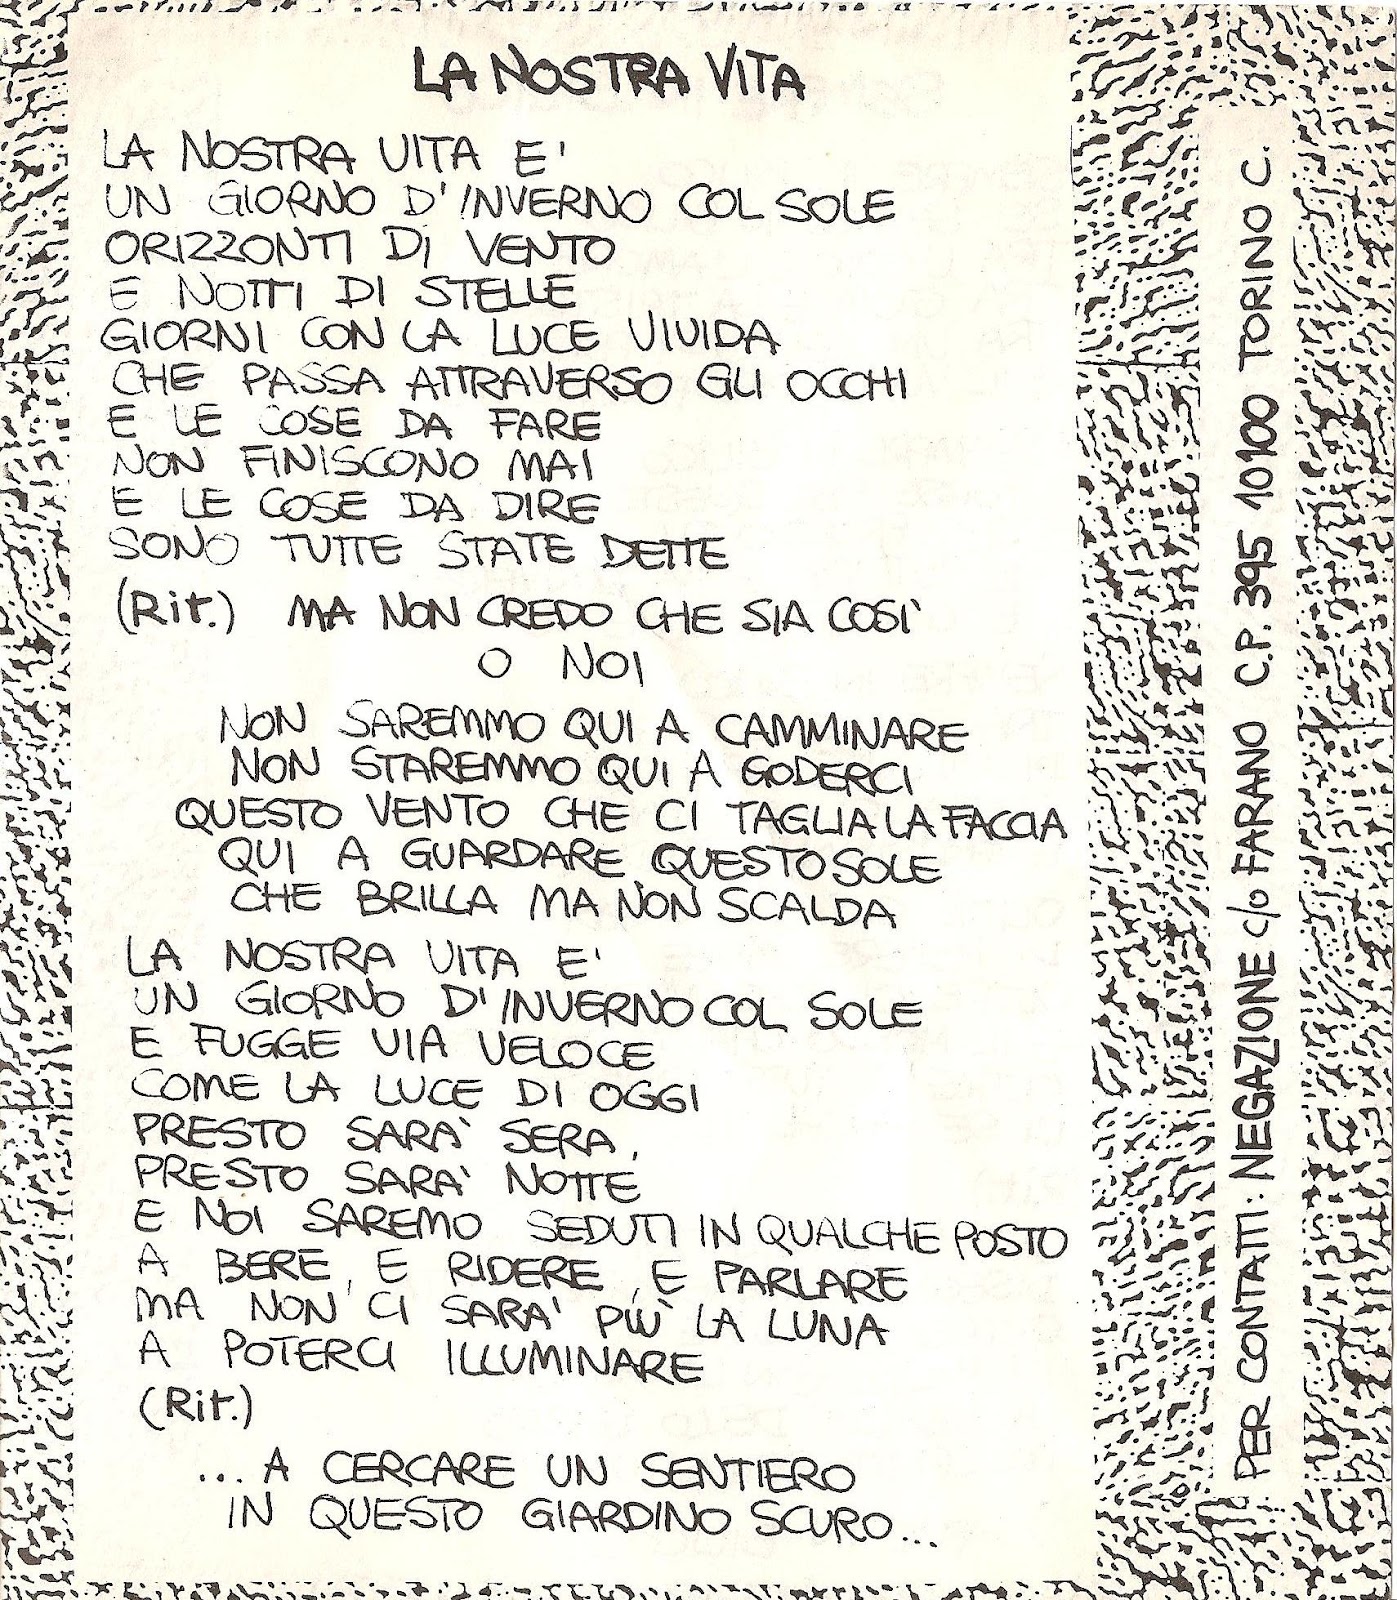 LA NOSTRA VITA
LA NOSTRA VITA E'
UN GIORNO D'INVERNO COL SOLE
ORIZZONTI DI VENTO
E NOTTI DI STELLE
GIORNI CON LA LUCE VIVIDA
CHE PASSA ATTRAVERSO GLI OCCHI
E LE COSE DA FARE
NON FINISCONO MAI
E LE COSE DA DIRE
SONO TUTTE STATE DETTE
(Rit.) MA NON CREDO CHE SIA COSI'
O NOI
NON SAREMMO QUI A CAMMINARE
NON STAREMMO QUI A GODERCI
QUESTO VENTO CHE CI TAGLIA LA FACCIA
QUI A GUARDARE QUESTO SOLE
CHE BRILLA MA NON SCALDA
LA NOSTRA VITA E'
UN GIORNO D'INVERNO COL SOLE
E FUGGE VIA VELOCE
COME LA LUCE DI OGGI
PRESTO SARA' SERA,
PRESTO SARA' NOTTE
E NOI SAREMO SEDUTI IN QUALCHE POSTO
A BERE, E RIDERE, E PARLARE
MA NON CI SARA' PIÙ LA LUNA
A POTERCI ILLUMINARE
(Rit.)
... A CERCARE UN SENTIERO
IN QUESTO GIARDINO SCURO...
PER CONTATTI: NEGAZIONE c/o FARANO C.P. 395 10100 TORINO C.